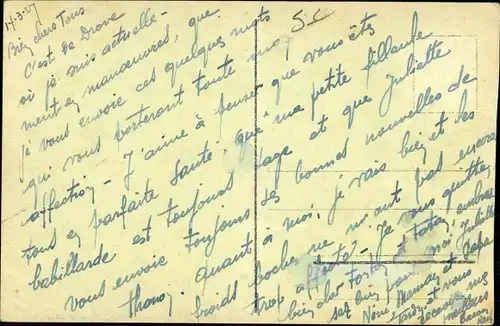 14-3-27
S-C
Bien chers Tous
C'est de Drove
où je suis actuelle-
ment en manœuvres, que
je vous envoie ces quelques mots
qui vous porteront toute mon
affection - J'aime à penser que vous êtes
tous en parfaite santé, que ma petite filleule
babillarde est toujours sage et que Juliette
vous envoie toujours de bonnes nouvelles de
Thonon. Quant à moi, je vais bien et les
froids Boches ne m'ont pas encore
trop affecté - Je vous quitte
bien chers Tonton et tata, embras-
sez bien pour moi Juliette
Maman et Papa
et vous
recevez mes
meilleurs